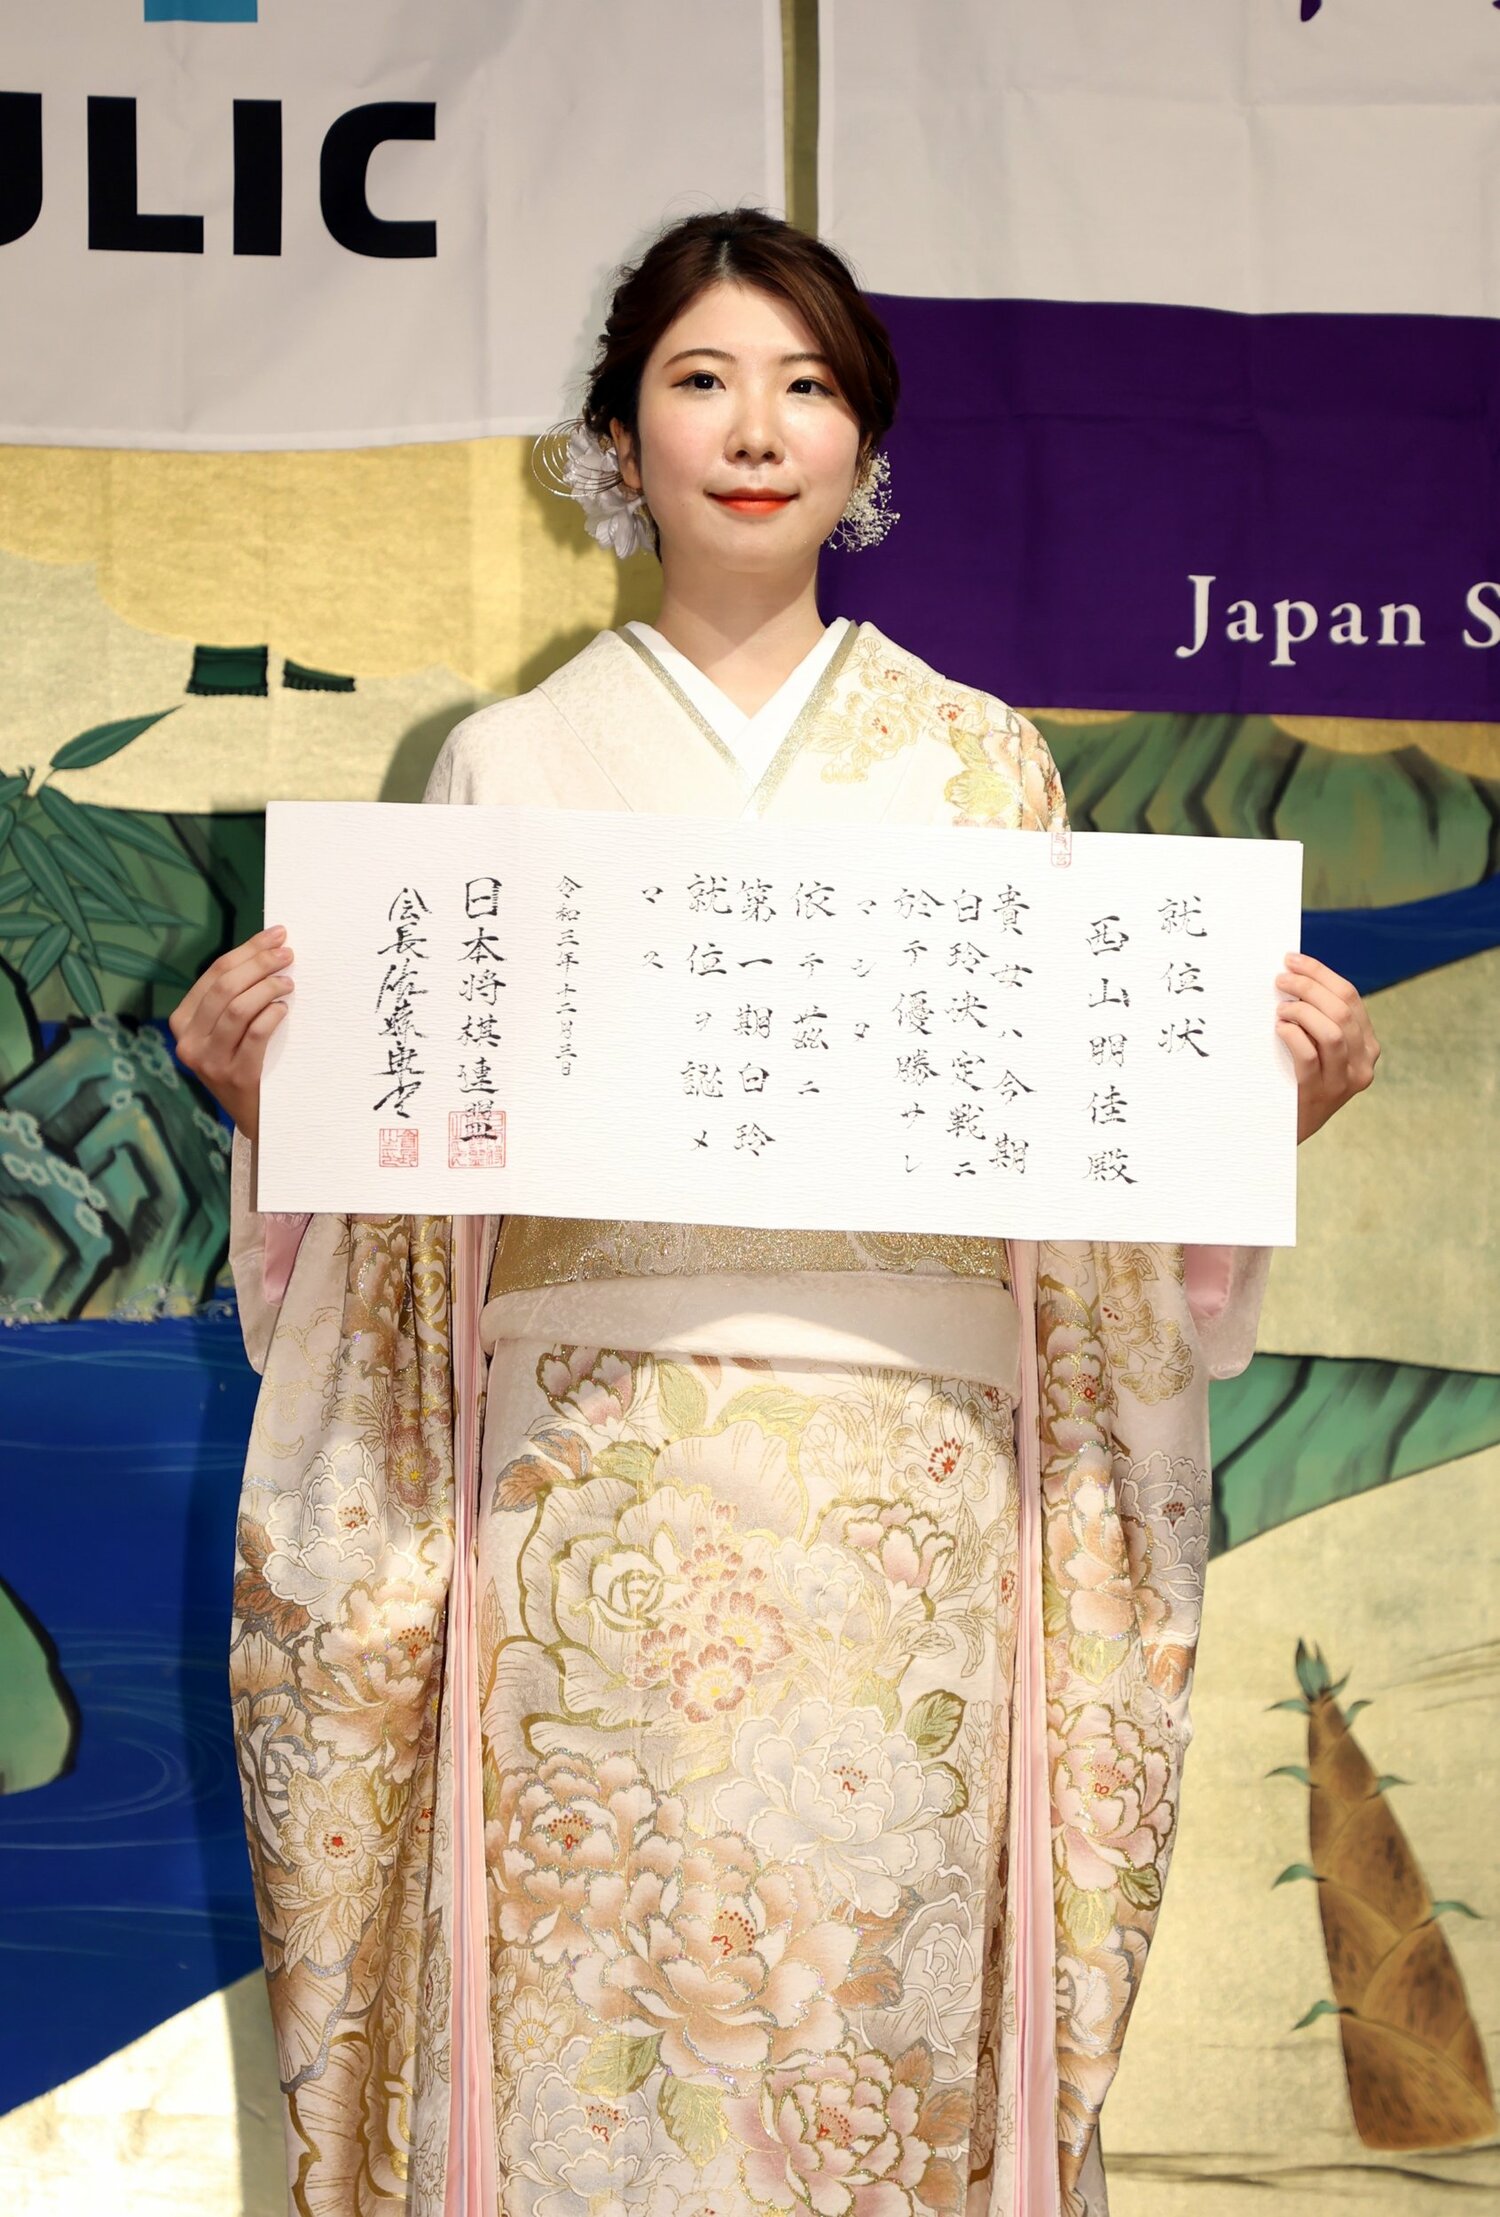 ULIC
Japan S
就位状
西山朋佳殿
貴女ハ今期
白玲決定戦ニ
於テ優勝サレ
マシタ
依テ茲ニ
第一期白玲
就位ヲ認メ
マス
令和三年十二月三日
日本将棋連盟
会長佐藤康光